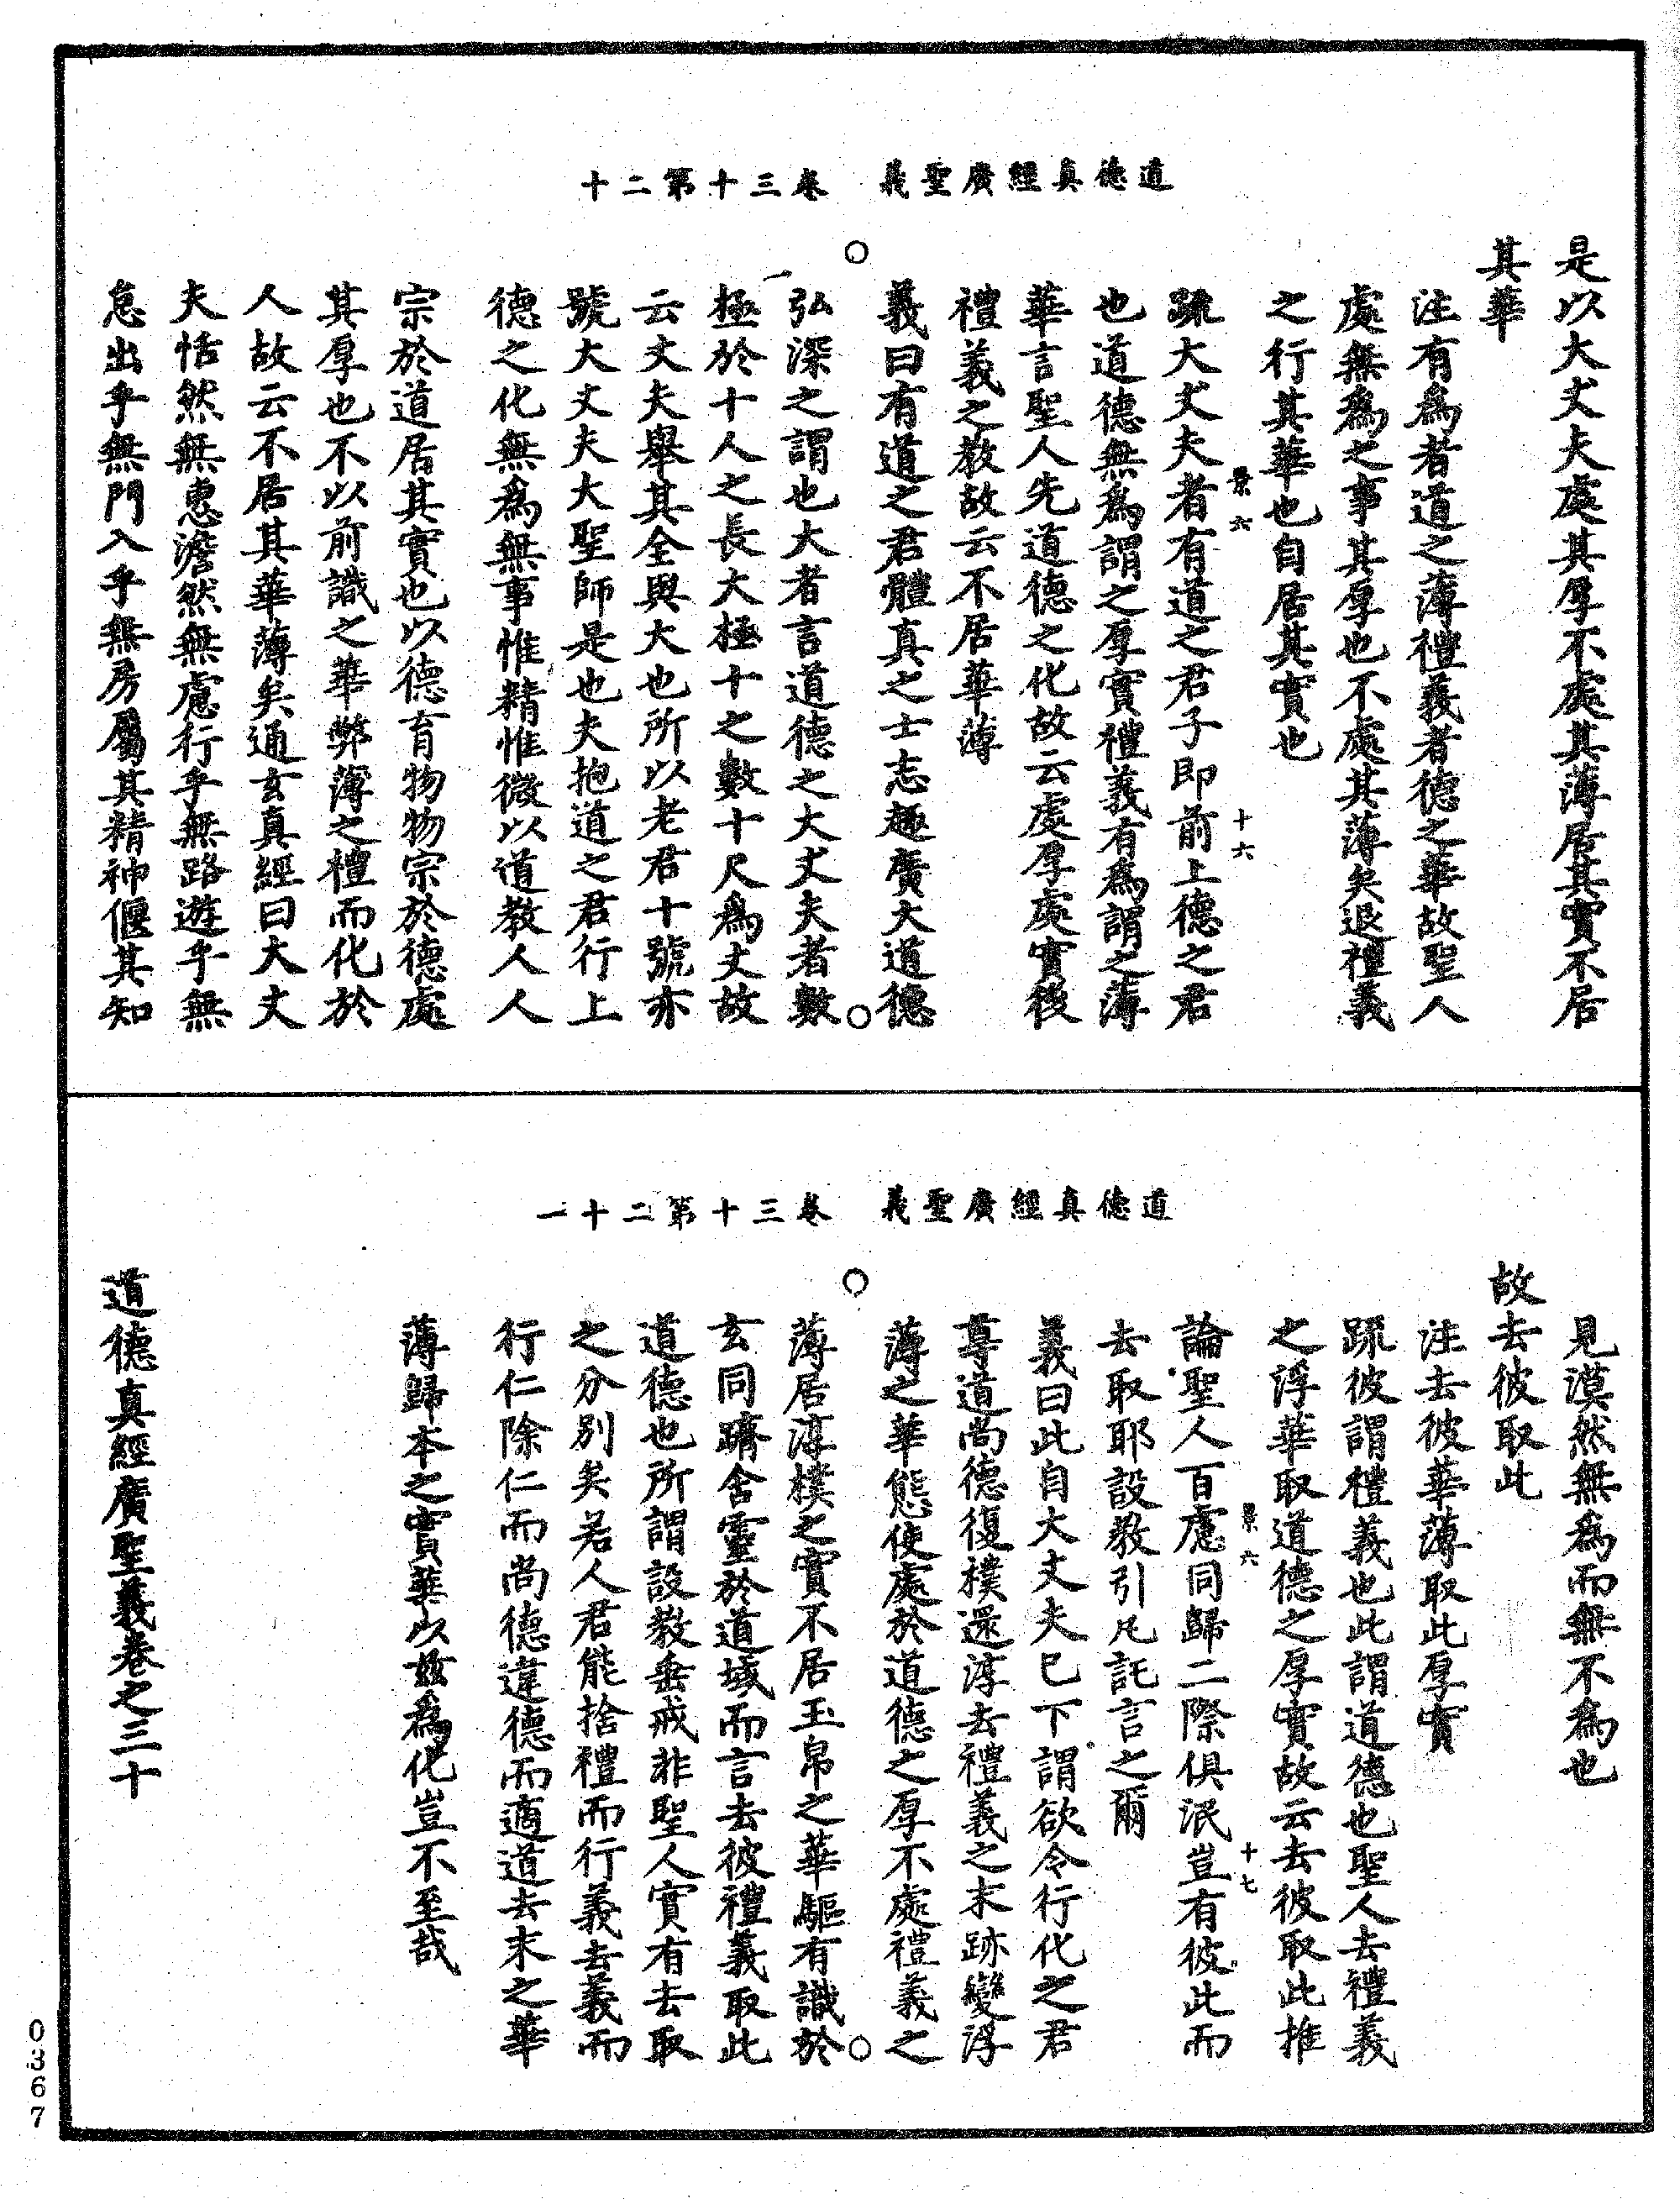 道德真經廣聖義　卷三十第二十
是以大丈夫處其厚不處其薄居其實不居
其華
注有為者道之薄禮義者德之華故聖人
處無為之事其厚也不處其薄矣退禮義
之行其華也自居其實也
疏大丈夫者有道之君子即前上德之君
也道德無為謂之厚實禮義有為謂之薄
華言聖人先道德之化故云處厚處實後
禮義之教故云不居華薄
義曰有道之君體真之士志趣廣大道德
弘深之謂也大者言道德之大丈夫者數
極於十人之長大極十之數十尺為丈故
云丈夫舉其全與大也所以老君十號亦
號大丈夫大聖師是也夫抱道之君行上
德之化無為無事惟精惟微以道教人人
宗於道居其實也以德育物物宗於德處
其厚也不以前識之華弊薄之禮而化於
人故云不居其華薄矣通玄真經曰大丈
夫恬然無惠澹然無慮行乎無路遊乎無
怠出乎無門入乎無房屬其精神偃其知
景六
十六
道德真經廣聖義　卷三十第二十一
見漠然無為而無不為也
故去彼取此
注去彼華薄取此厚實
疏彼謂禮義也此謂道德也聖人去禮義
之浮華取道德之厚實故云去彼取此推
論聖人百慮同歸二際俱泯豈有彼此而
去取耶設教引凡託言之爾
義曰此自大丈夫已下謂欲令行化之君
尊道尚德復樸還淳去禮義之末跡變浮
薄之華態使處於道德之厚不處禮義之
薄居淳樸之實不居玉帛之華驅有識於
玄同躋含靈於道域而言去彼禮義取此
道德也所謂設教垂戒非聖人實有去取
之分別矣若人君能捨禮而行義去義而
行仁除仁而尚德違德而適道去末之華
薄歸本之實華以茲為化豈不至哉
道德真經廣聖義卷之三十
景六
十七
0367